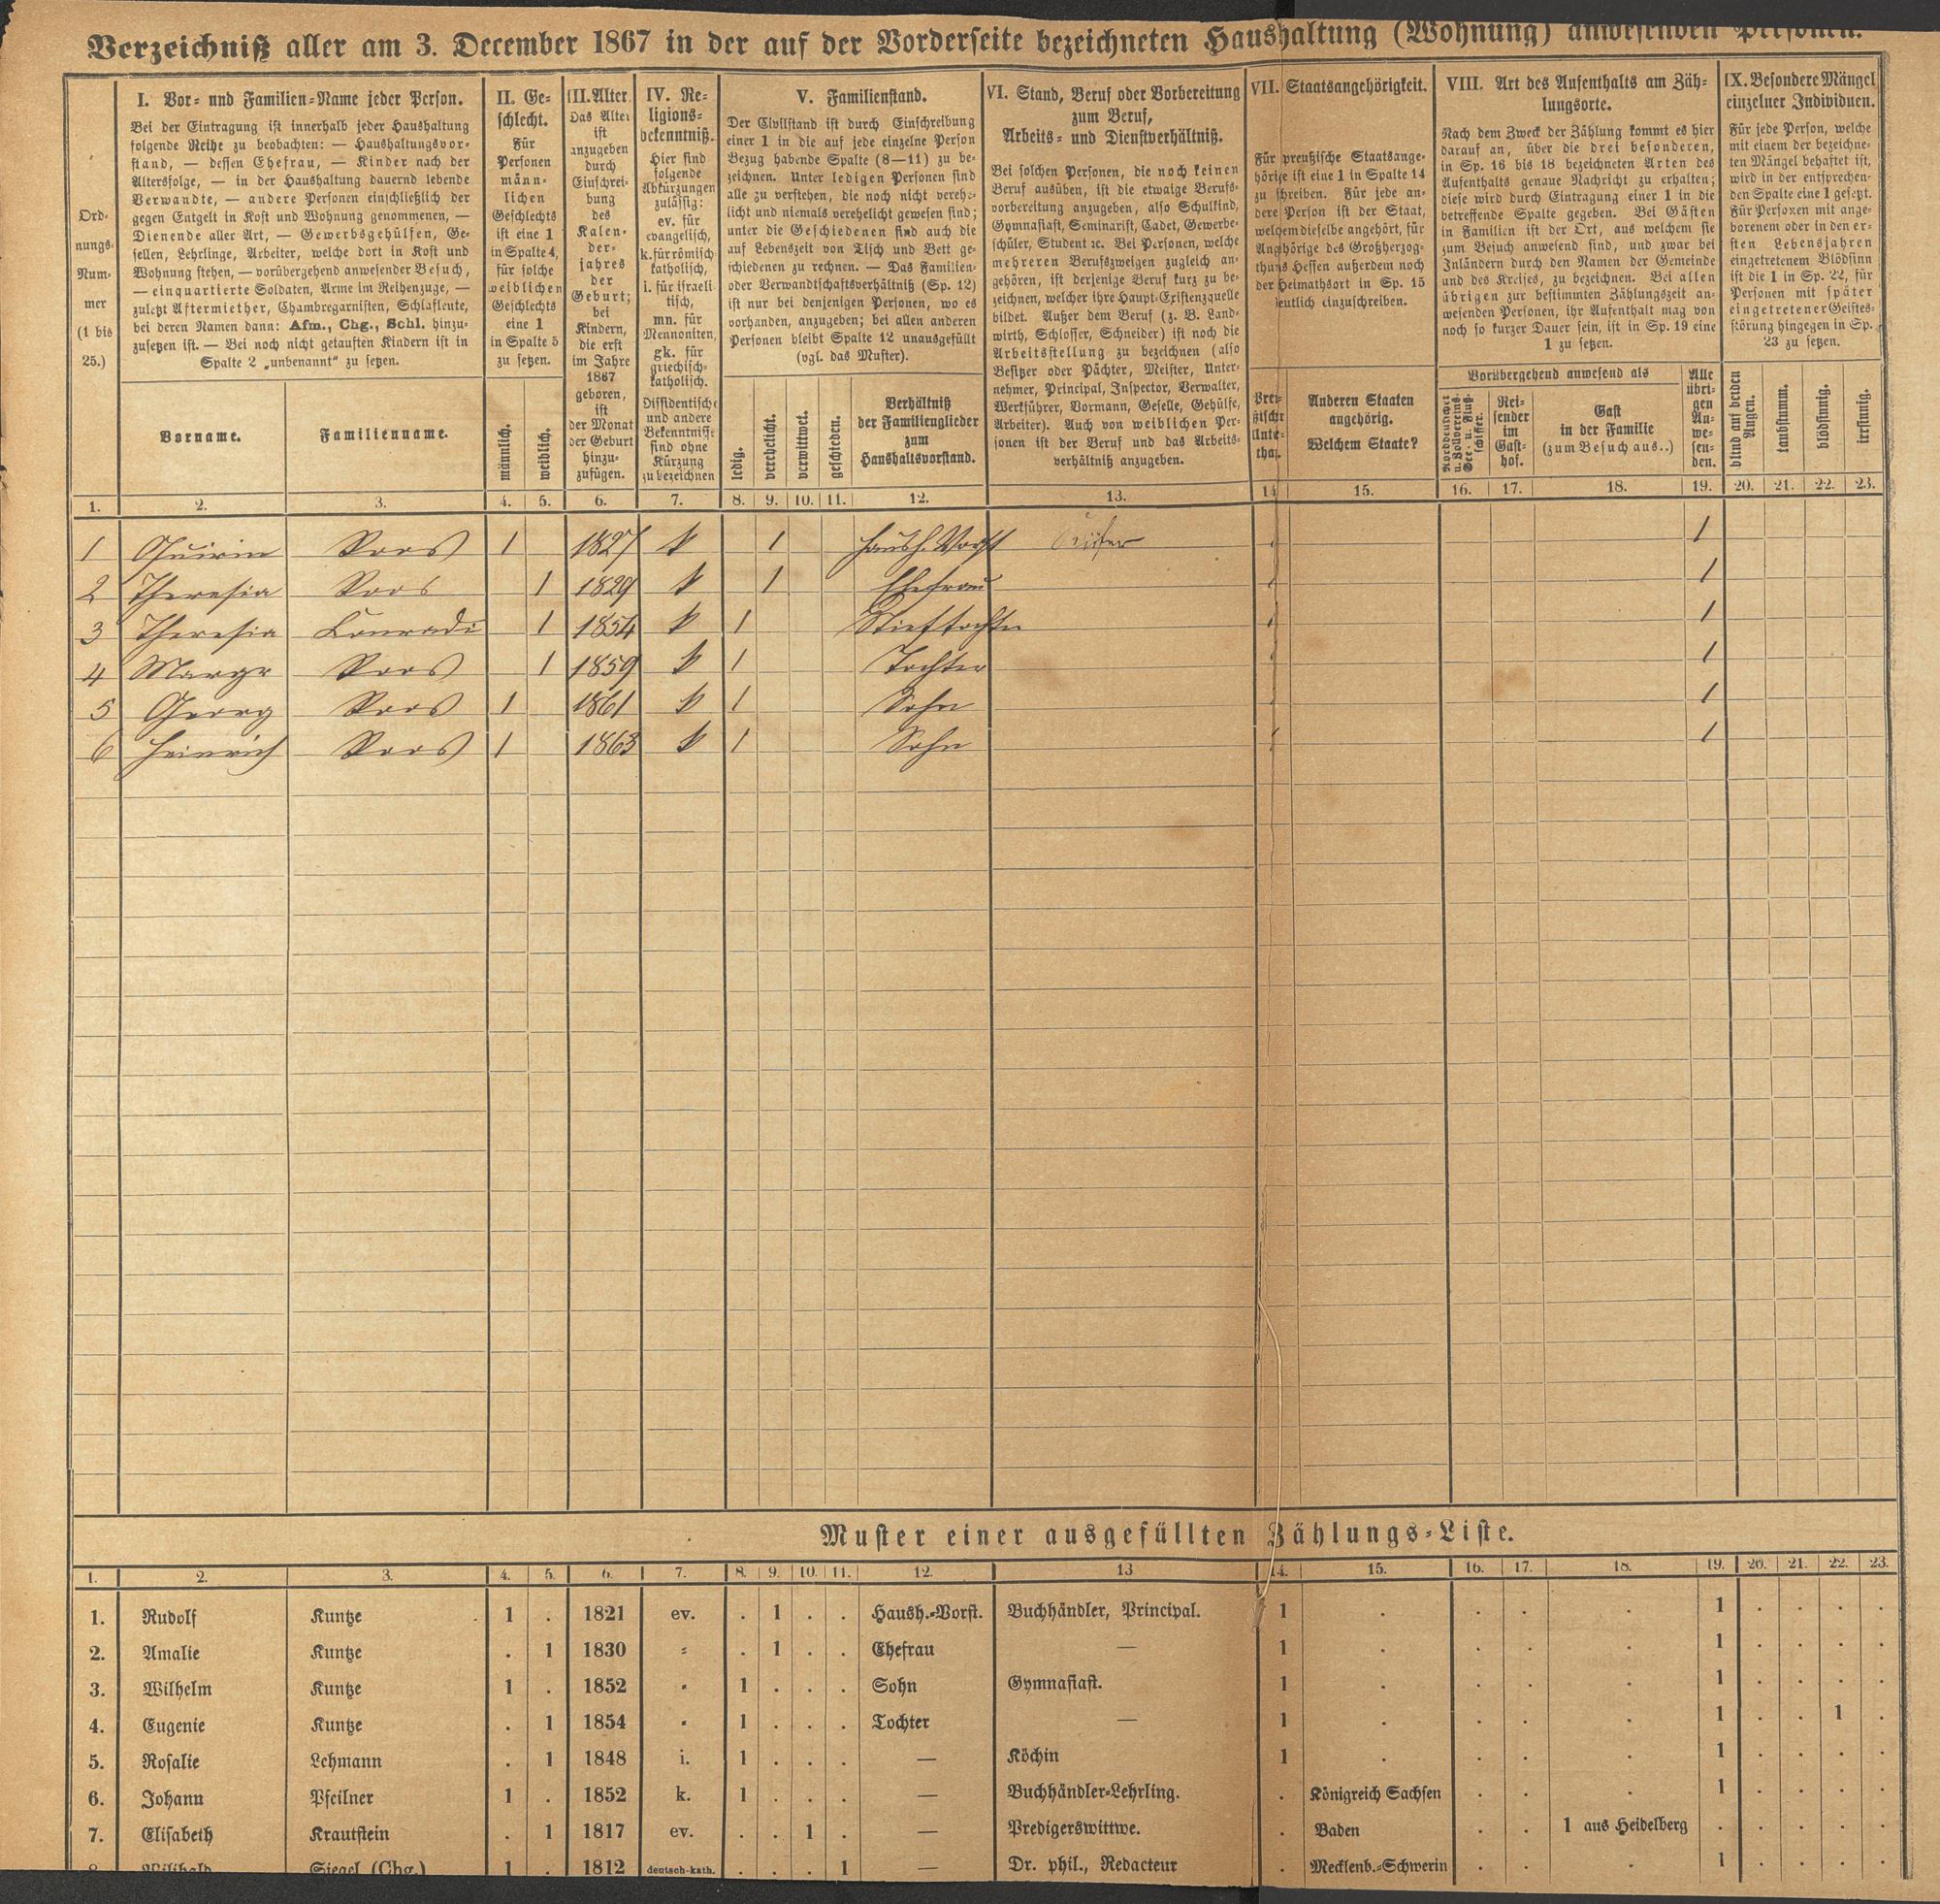 Verzeichniß aller am 3. December 1867 in der auf der Vorderseite bezeichneten Haushaltung (Wohnung) anwesenden Personen.
Ord-
nungs-
Num-
mer
(1 bis
25.)
I. Vor- und Familien-Name jeder Person.
Bei der Eintragung ist innerhalb jeder Haushaltung
folgende Reihe zu beobachten: — Haushaltungsvor-
stand, — dessen Ehefrau, — Kinder nach der
Altersfolge, — in der Haushaltung dauernd lebende
Verwandte, — andere Personen einschließlich der
gegen Entgelt in Kost und Wohnung genommenen, —
Dienende aller Art, — Gewerbsgehülfen, Ge-
sellen, Lehrlinge, Arbeiter, welche dort in Kost und
Wohnung stehen, — vorübergehend anwesender Besuch,
— einquartierte Soldaten, Arme im Reihenzuge, —
zuletzt Aftermiether, Chambregarnisten, Schlafleute,
bei deren Namen dann: Afm., Chg., Schl. hinzu-
zusetzen ist. — Bei noch nicht getauften Kindern ist in
Spalte 2 „unbenannt“ zu setzen.
Vorname.
Familienname.
II. Ge-
schlecht.
Für
Personen
männ-
lichen
Geschlechts
ist eine 1
in Spalte 4,
für solche
weiblichen
Geschlechts
eine 1
in Spalte 5
zu setzen.
männlich.
weiblich.
III. Alter.
Das Alter
ist
anzugeben
durch
Einschrei-
bung
des
Kalen-
der-
jahres
der
Geburt;
bei
Kindern,
die erst
im Jahre
1867
geboren,
ist
der Monat
der Geburt
hinzu-
zufügen.
IV. Re-
ligions-
bekenntniß.
Hier sind
folgende
Abkürzungen
zulässig:
ev. für
evangelisch,
k. für römisch-
katholisch,
i. für israeli-
tisch,
mn. für
Mennoniten,
gk. für
griechisch-
katholisch.
Dissidentische
und andere
Bekenntnisse
sind ohne
Kürzung
zu bezeichnen
V. Familienstand.
Der Civilstand ist durch Einschreibung
einer 1 in die auf jede einzelne Person
Bezug habende Spalte (8—11) zu be-
zeichnen. Unter ledigen Personen sind
alle zu verstehen, die noch nicht verehe-
licht und niemals verehelicht gewesen sind;
unter die Geschiedenen sind auch die
auf Lebenszeit von Tisch und Bett ge-
schiedenen zu rechnen. — Das Familien-
oder Verwandtschaftsverhältniß (Sp. 12)
ist nur bei denjenigen Personen, wo es
vorhanden, anzugeben; bei allen anderen
Personen bleibt Spalte 12 unausgefüllt
(vgl. das Muster).
ledig.
verehelicht.
verwittwet.
geschieden.
Verhältniß
der Familienglieder
zum
Haushaltsvorstand.
VI. Stand, Beruf oder Vorbereitung
zum Beruf,
Arbeits- und Dienstverhältniß.
Bei solchen Personen, die noch keinen
Beruf ausüben, ist die etwaige Berufs-
vorbereitung anzugeben, also Schulkind,
Gymnasiast, Seminarist, Cadet, Gewerbe-
schüler, Student ꝛc. Bei Personen, welche
mehreren Berufszweigen zugleich an-
gehören, ist derjenige Beruf kurz zu be-
zeichnen, welcher ihre Haupt-Existenzquelle
bildet. Außer dem Beruf (z. B. Land-
wirth, Schlosser, Schneider) ist noch die
Arbeitsstellung zu bezeichnen (also
Besitzer oder Pächter, Meister, Unter-
nehmer, Principal, Inspector, Verwalter,
Werkführer, Vormann, Geselle, Gehülfe,
Arbeiter). Auch von weiblichen Per-
sonen ist der Beruf und das Arbeits-
verhältniß anzugeben.
VII. Staatsangehörigkeit.
Für preußische Staatsange-
hörige ist eine 1 in Spalte 14
zu schreiben. Für jede an-
dere Person ist der Staat,
welchem dieselbe angehört, für
Angehörige des Großherzog-
thums Hessen außerdem noch
der Heimathsort in Sp. 15
deutlich einzuschreiben.
Preu-
ßischer
Unter-
than.
Anderen Staaten
angehörig.
Welchem Staate?
VIII. Art des Aufenthalts am Zäh-
lungsorte.
Nach dem Zweck der Zählung kommt es hier
darauf an, über die drei besonderen,
in Sp. 16 bis 18 bezeichneten Arten des
Aufenthalts genaue Nachricht zu erhalten;
diese wird durch Eintragung einer 1 in die
betreffende Spalte gegeben. Bei Gästen
in Familien ist der Ort, aus welchem sie
zum Besuch anwesend sind, und zwar bei
Inländern durch den Namen der Gemeinde
und des Kreises, zu bezeichnen. Bei allen
übrigen zur bestimmten Zählungszeit an-
wesenden Personen, ihr Aufenthalt mag von
noch so kurzer Dauer sein, ist in Sp. 19 eine
1 zu setzen.
Vorübergehend anwesend als
Norddeutscher
u. Zollvereins-
See- u. Fluß-
schiffer.
Rei-
sender
im
Gast-
hof.
Gast
in der Familie
(zum Besuch aus..)
Alle
übri-
gen
An-
we-
sen-
den.
IX. Besondere Mängel
einzelner Individuen.
Für jede Person, welche
mit einem der bezeichne-
ten Mängel behaftet ist,
wird in der entsprechen-
den Spalte eine 1 gesetzt.
Für Personen mit ange-
borenem oder in den er-
sten Lebensjahren
eingetretenem Blödsinn
ist die 1 in Sp. 22, für
Personen mit später
eingetretener Geistes-
störung hingegen in Sp.
23 zu setzen.
blind auf beiden
Augen.
taubstumm.
blödsinnig.
irrsinnig.
1. 2. 3. 4. 5. 6. 7. 8. 9. 10. 11. 12. 13. 14 15. 16. 17. 18. 19. 20. 21. 22. 23.
1 Quirin Roos 1 1827 k 1 Haush. Vorst Küfer 1 1
2 Theresia Roos 1 1829 k 1 Ehefrau 1 1
3 Theresia Konradi 1 1854 k 1 Stieftochter 1 1
4 Margr Roos 1 1859 k 1 Tochter 1 1
5 Georg Roos 1 1861 k 1 Sohn 1 1
6 Heinrich Roos 1 1863 k 1 Sohn 1 1
Muster einer ausgefüllten Zählungs-Liste.
1. 2. 3. 4. 5. 6. 7. 8. 9. 10. 11. 12. 13 14. 15. 16. 17. 18. 19. 20. 21. 22. 23.
1. Rudolf Kuntze 1 . 1821 ev. . 1 . . Haush.-Vorst. Buchhändler, Principal. 1 . . . . 1 . . . .
2. Amalie Kuntze . 1 1830 " . 1 . . Ehefrau — 1 . . . . 1 . . . .
3. Wilhelm Kuntze 1 . 1852 " 1 . . . Sohn Gymnasiast. 1 . . . . 1 . . . .
4. Eugenie Kuntze . 1 1854 " 1 . . . Tochter — 1 . . . . 1 . . 1 .
5. Rosalie Lehmann . 1 1848 i. 1 . . . — Köchin 1 . . . . 1 . . . .
6. Johann Pfeilner 1 . 1852 k. 1 . . . — Buchhändler-Lehrling. . Königreich Sachsen . . . 1 . . . .
7. Elisabeth Krautstein . 1 1817 ev. . . 1 . — Predigerswittwe. . Baden . . 1 aus Heidelberg . . . . .
8. Wilibald Siegel (Chg.) 1 . 1812 deutsch-kath. . . . 1 — Dr. phil., Redacteur . Mecklenb.-Schwerin . . . 1 . . . .